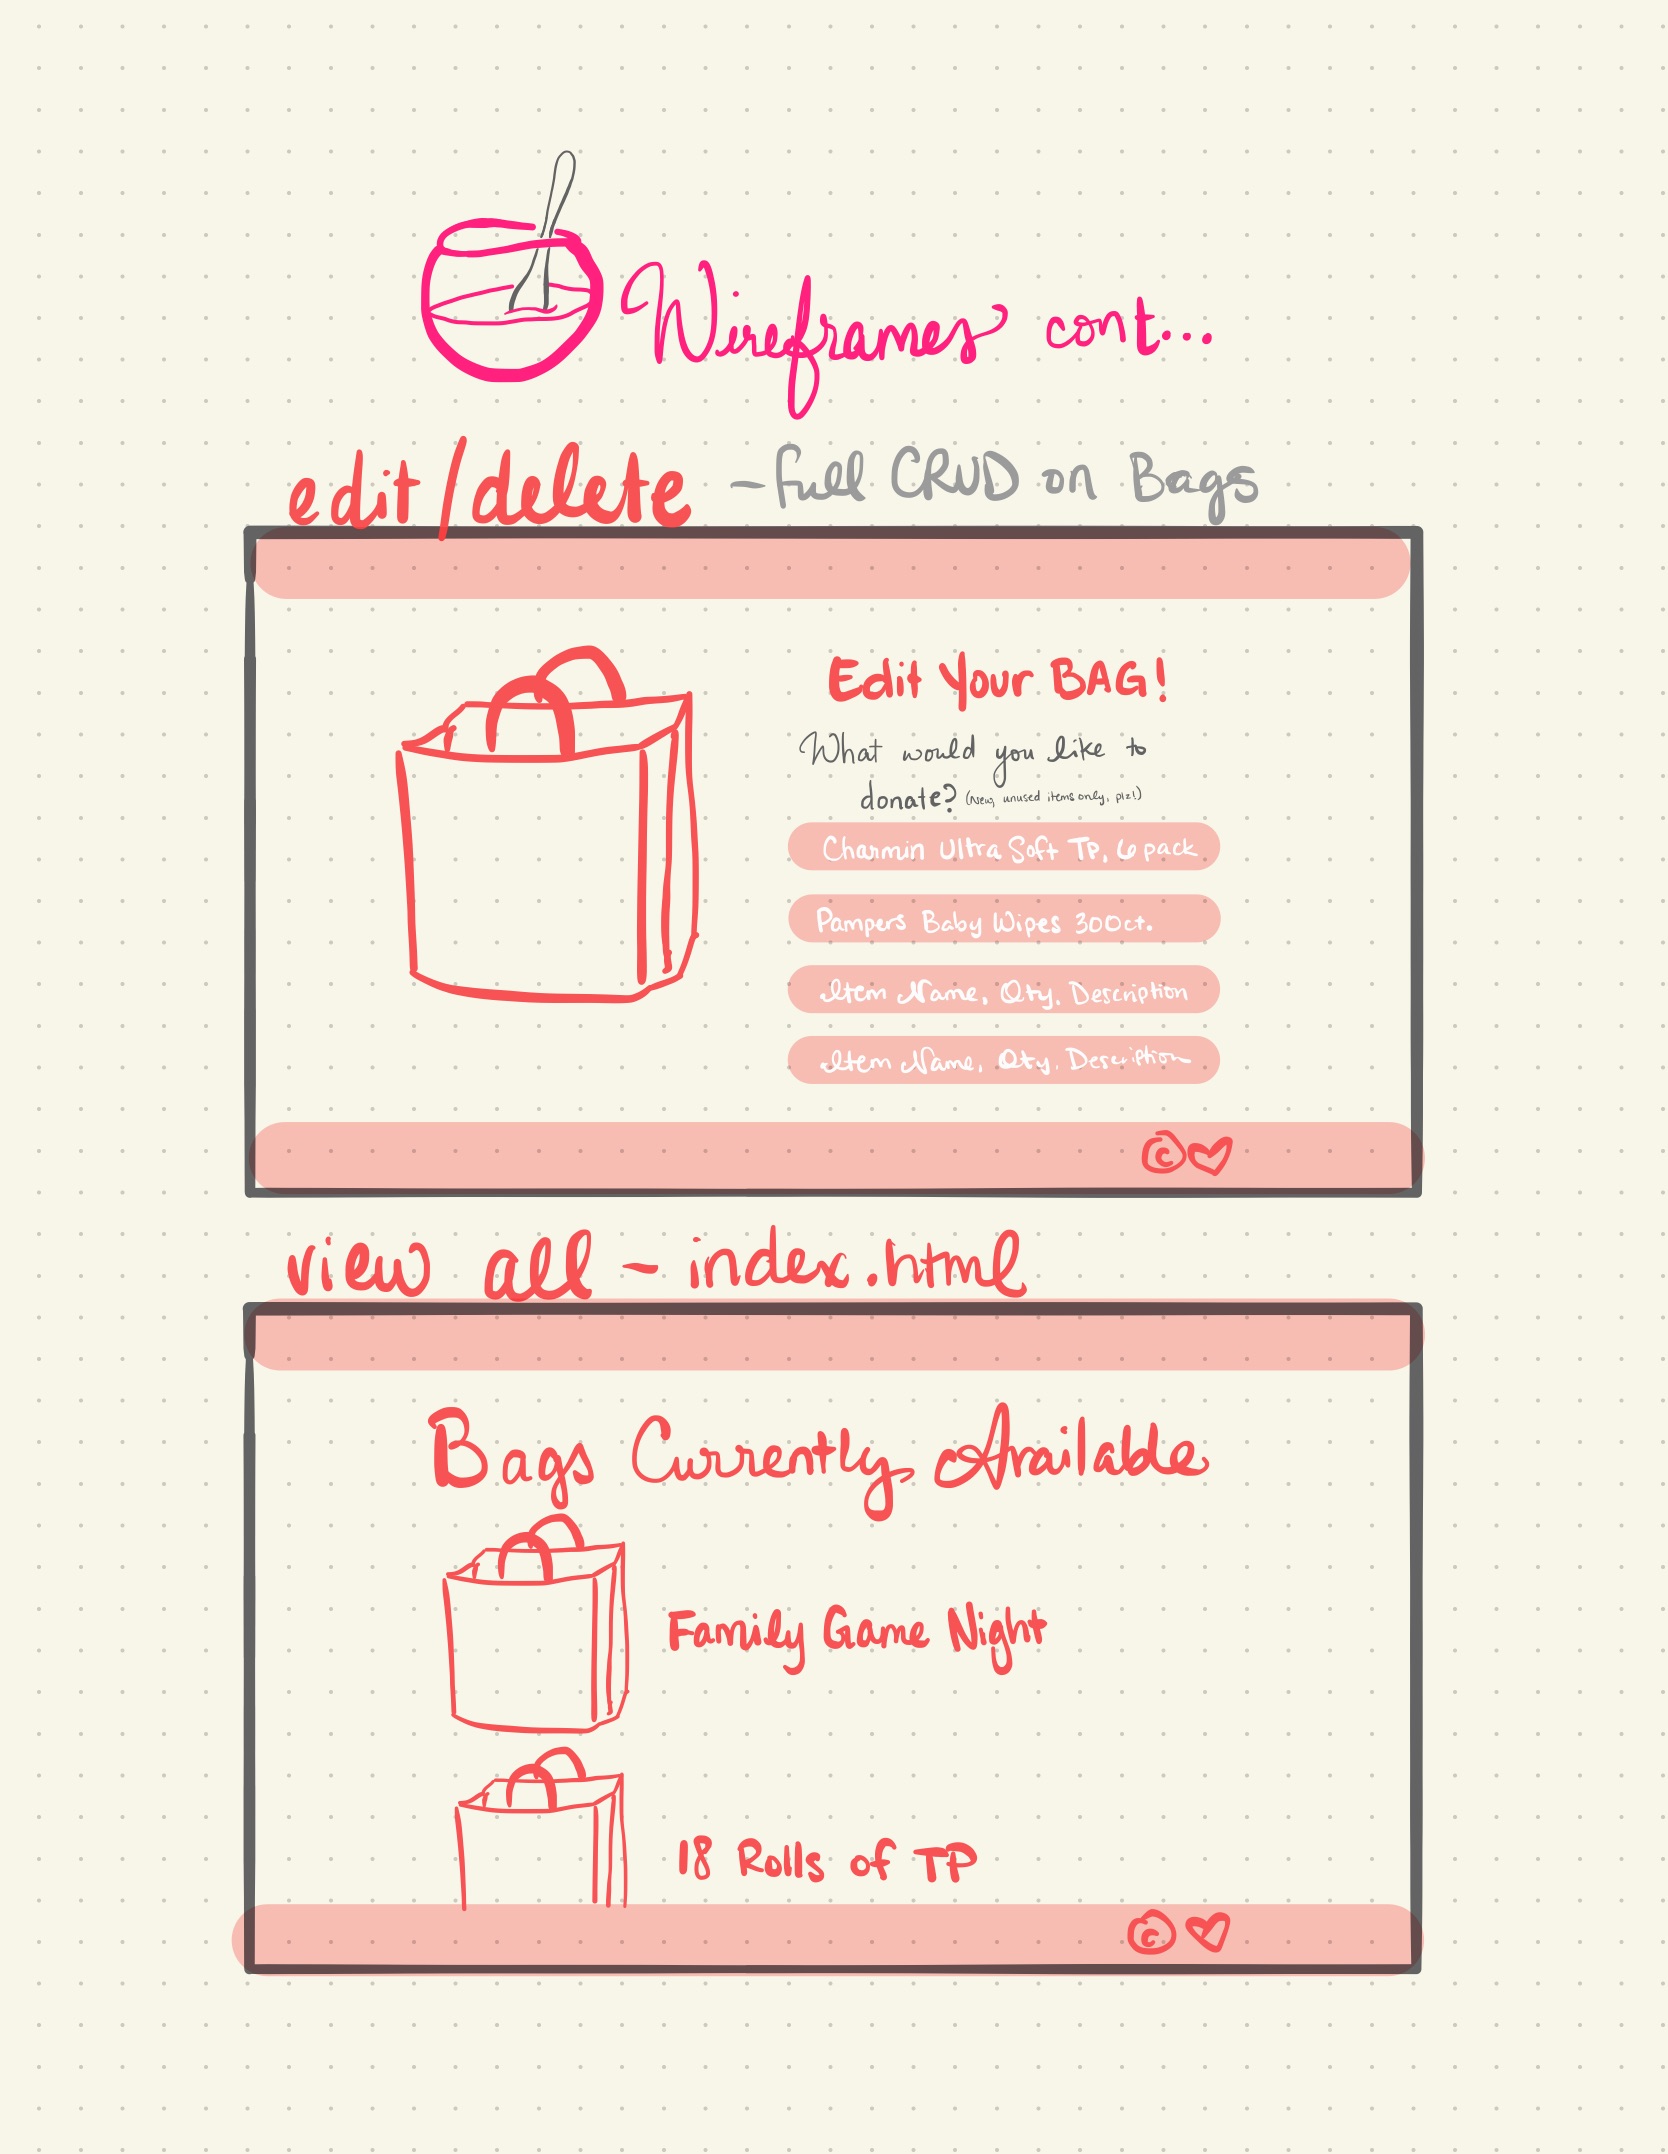 Wireframes cont...
edit/delete - full CRUD on Bags
Edit Your BAG!
What would you like to
donate? (New, unused items only, plz!)
Charmin Ultra Soft TP, 6 pack
Pampers Baby Wipes 300ct.
Item Name, Qty, Description
Item Name, Qty, Description
©
view all - index.html
Bags Currently Available
Family Game Night
18 Rolls of TP
©